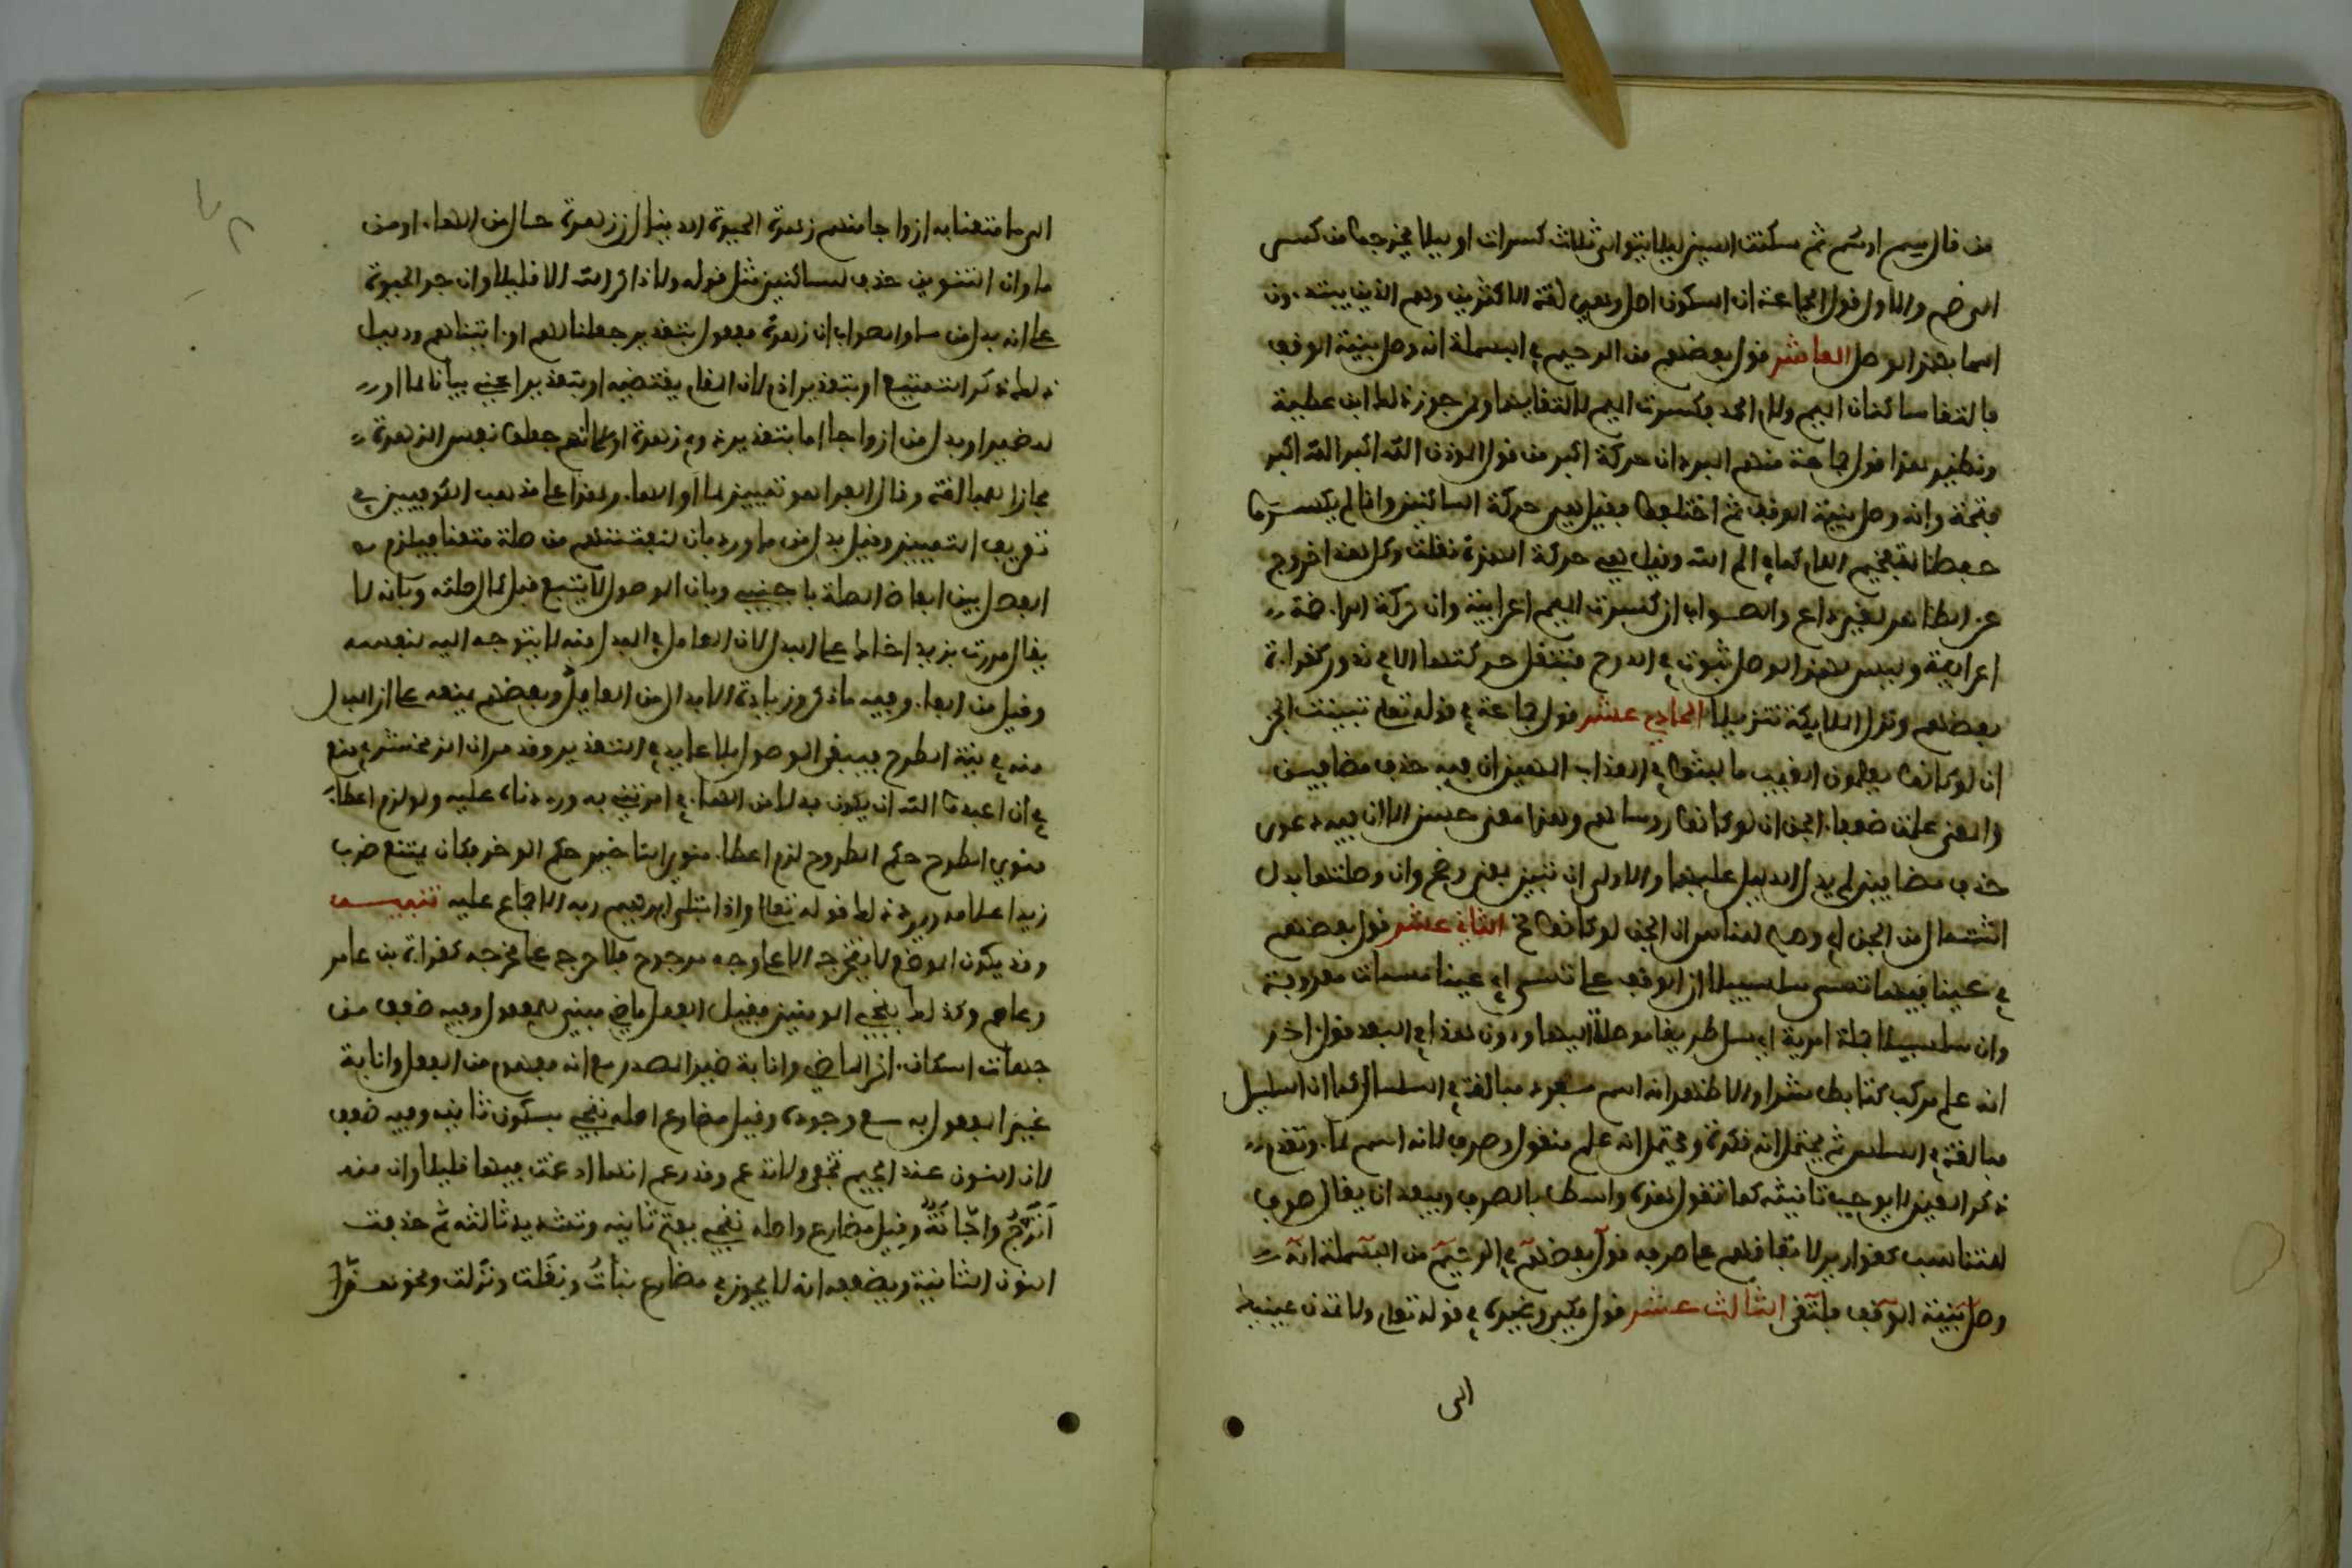 من قال سم او سم ثم سكنت السين ليلا يتوالى ثلاث كسرات او ليلا يخرجوا من كسر
الى ضم والاول قول الجماعة ان السكون اصل وهي لغة الاكثرين وهم الذين يبتدءون
اسما بهمز الوصل العاشر قول بعضهم من الرحيم في البسملة انه وصل بنية الوقف
فالتقا ساكنان الميم ولام الحمد فكسرت الميم لالتقايهما وممن جوز ذلك ابن عطية
ونظير هذا قول جماعة منهم المبرد ان حركة اكبر من قول الموذن الله اكبر الله اكبر
فتحة وانه وصل بنية الوقف ثم اختلفوا فقيل هي حركة الساكنين وانما لم يكسروا
حفظا لتفخيم اللام كما في الم الله وقيل هي حركة الهمزة نقلت وكل هذا خروج
عن الظاهر لغير داع والصواب ان كسرة الميم اعرابية وان حركة الراء ضمة
اعرابية وليس لهمز الوصل ثبوت في الدرج فتنقل حركتها الا في ندور كقراءة
بعضهم ونزل الملايكة تنزيلا الحادي عشر قول جماعة في قوله تعلى تبينت الجن
ان لو كانوا يعلمون الغيب ما لبثوا في العذاب المهين ان فيه حذف مضافين
والمعنى علمت ضعفاء الجن ان لو كانوا روساهم وهذا معنى حسن الا ان فيه دعوى
حذف مضافين لم يدل الدليل عليهما والاولى ان تبين بمعنى وضح وان وصلتها بدل
اشتمال من الجن اي وضح للناس ان الجن لو كانوا الخ الثاني عشر قول بعضهم
في عينا فيها تسمى سلسبيلا ان الوقف على تسمى اي عينا مسماة معروفة
وان سلسبيلا جملة امرية اي سل طريقا موصلة اليها ودون هذا في البعد قول اخر
انه علم مركب كتابط شرا والاظهر انه اسم مفرد مبالغة في السلسال كما ان السلسال
مبالغة في السلس ثم يحتمل انه نكرة ويحتمل انه علم منقول وصرف لانه اسم لماء وتقدم
ذكر العين لا يوجب تانيثه كما تقول هذه واسط بالصرف ويبعد ان يقال صرف
للتناسب كقوارير لاتفاقهم على صرفه قول بعضهم في الرحيم من البسملة انه
وصل بنية الوقف فالتقى الثالث عشر قول مكي وغيره في قوله تعلى ولا تمدن عينيك
الى
الى ما متعنا به ازواجا منهم زهرة الحيوة الدنيا ان زهرة حال من الهاء او من
ما وان التنوين حذف للساكنين مثل قوله ولا ذاكر الله الا قليلا وان جر الحيوة
على انه بدل من ما والصواب ان زهرة مفعول بتقدير جعلنا لهم او اتيناهم ودليل
ذلك ذكر التمتيع او بتقدير اذم لان المقام يقتضيه او بتقدير اعني بيانا لما او
للضمير او بدل من ازواجا اما بتقدير ذوي زهرة او على انهم جعلوا نفس الزهرة
مجازا للمبالغة وقال الفراء هو تمييز لما او الهاء وهذا على مذهب الكوفيين في
تعريف التمييز وقيل بدل من ما ورد بان لنفتنهم من صلة متعنا فيلزم
الفصل بين ابعاض الصلة باجنبي وبان الموصول لا يتبع قبل كمال صلته وبانه لا
يقال مررت بزيد اخاك على البدل لان العامل في المبدل منه لا يتوجه اليه بنفسه
وقيل من الهاء وفيه ما ذكر وزيادة الابدال من العايد وبعضهم يمنعه على ان المبدل
منه في نية الطرح فيبقى الموصول بلا عايد في التقدير وقد مر ان الزمخشري منع
في ان اعبدوا الله ان يكون بدلا من الهاء في امرتني به ورددناه عليه ولو لزم اعطاء
منوي الطرح حكم المطروح لزم اعطاء منوي التاخير حكم الموخر فكان يمتنع ضرب
زيدا غلامه ويرد ذلك قوله تعلى واذ ابتلى ابرهيم ربه الاجماع عليه تنبيه
وقد يكون الموضع لا يتخرج الا على وجه مرجوح فلا حرج على مخرجه كقراءة بن عامر
وعاصم وكذلك نجي المومنين فقيل الفعل ماض مبني للمفعول وفيه ضعف من
جهات اسكان اخر الماضي وانابة ضمير المصدر مع انه مفهوم من الفعل وانابة
غير المفعول به مع وجوده وقيل مضارع اصله ننجي بسكون ثانيه وفيه ضعف
لان النون عند الجيم تخفى ولا تدغم وقد زعم انها ادغمت فيها قليلا وان منه
اترج واجانة وقيل مضارع واصله ننجي بفتح ثانيه وتشديد ثالثه ثم حذفت
النون الثانية ويضعفه انه لا يجوز في مضارع نبات ونقلت ونزلت ونحوهن